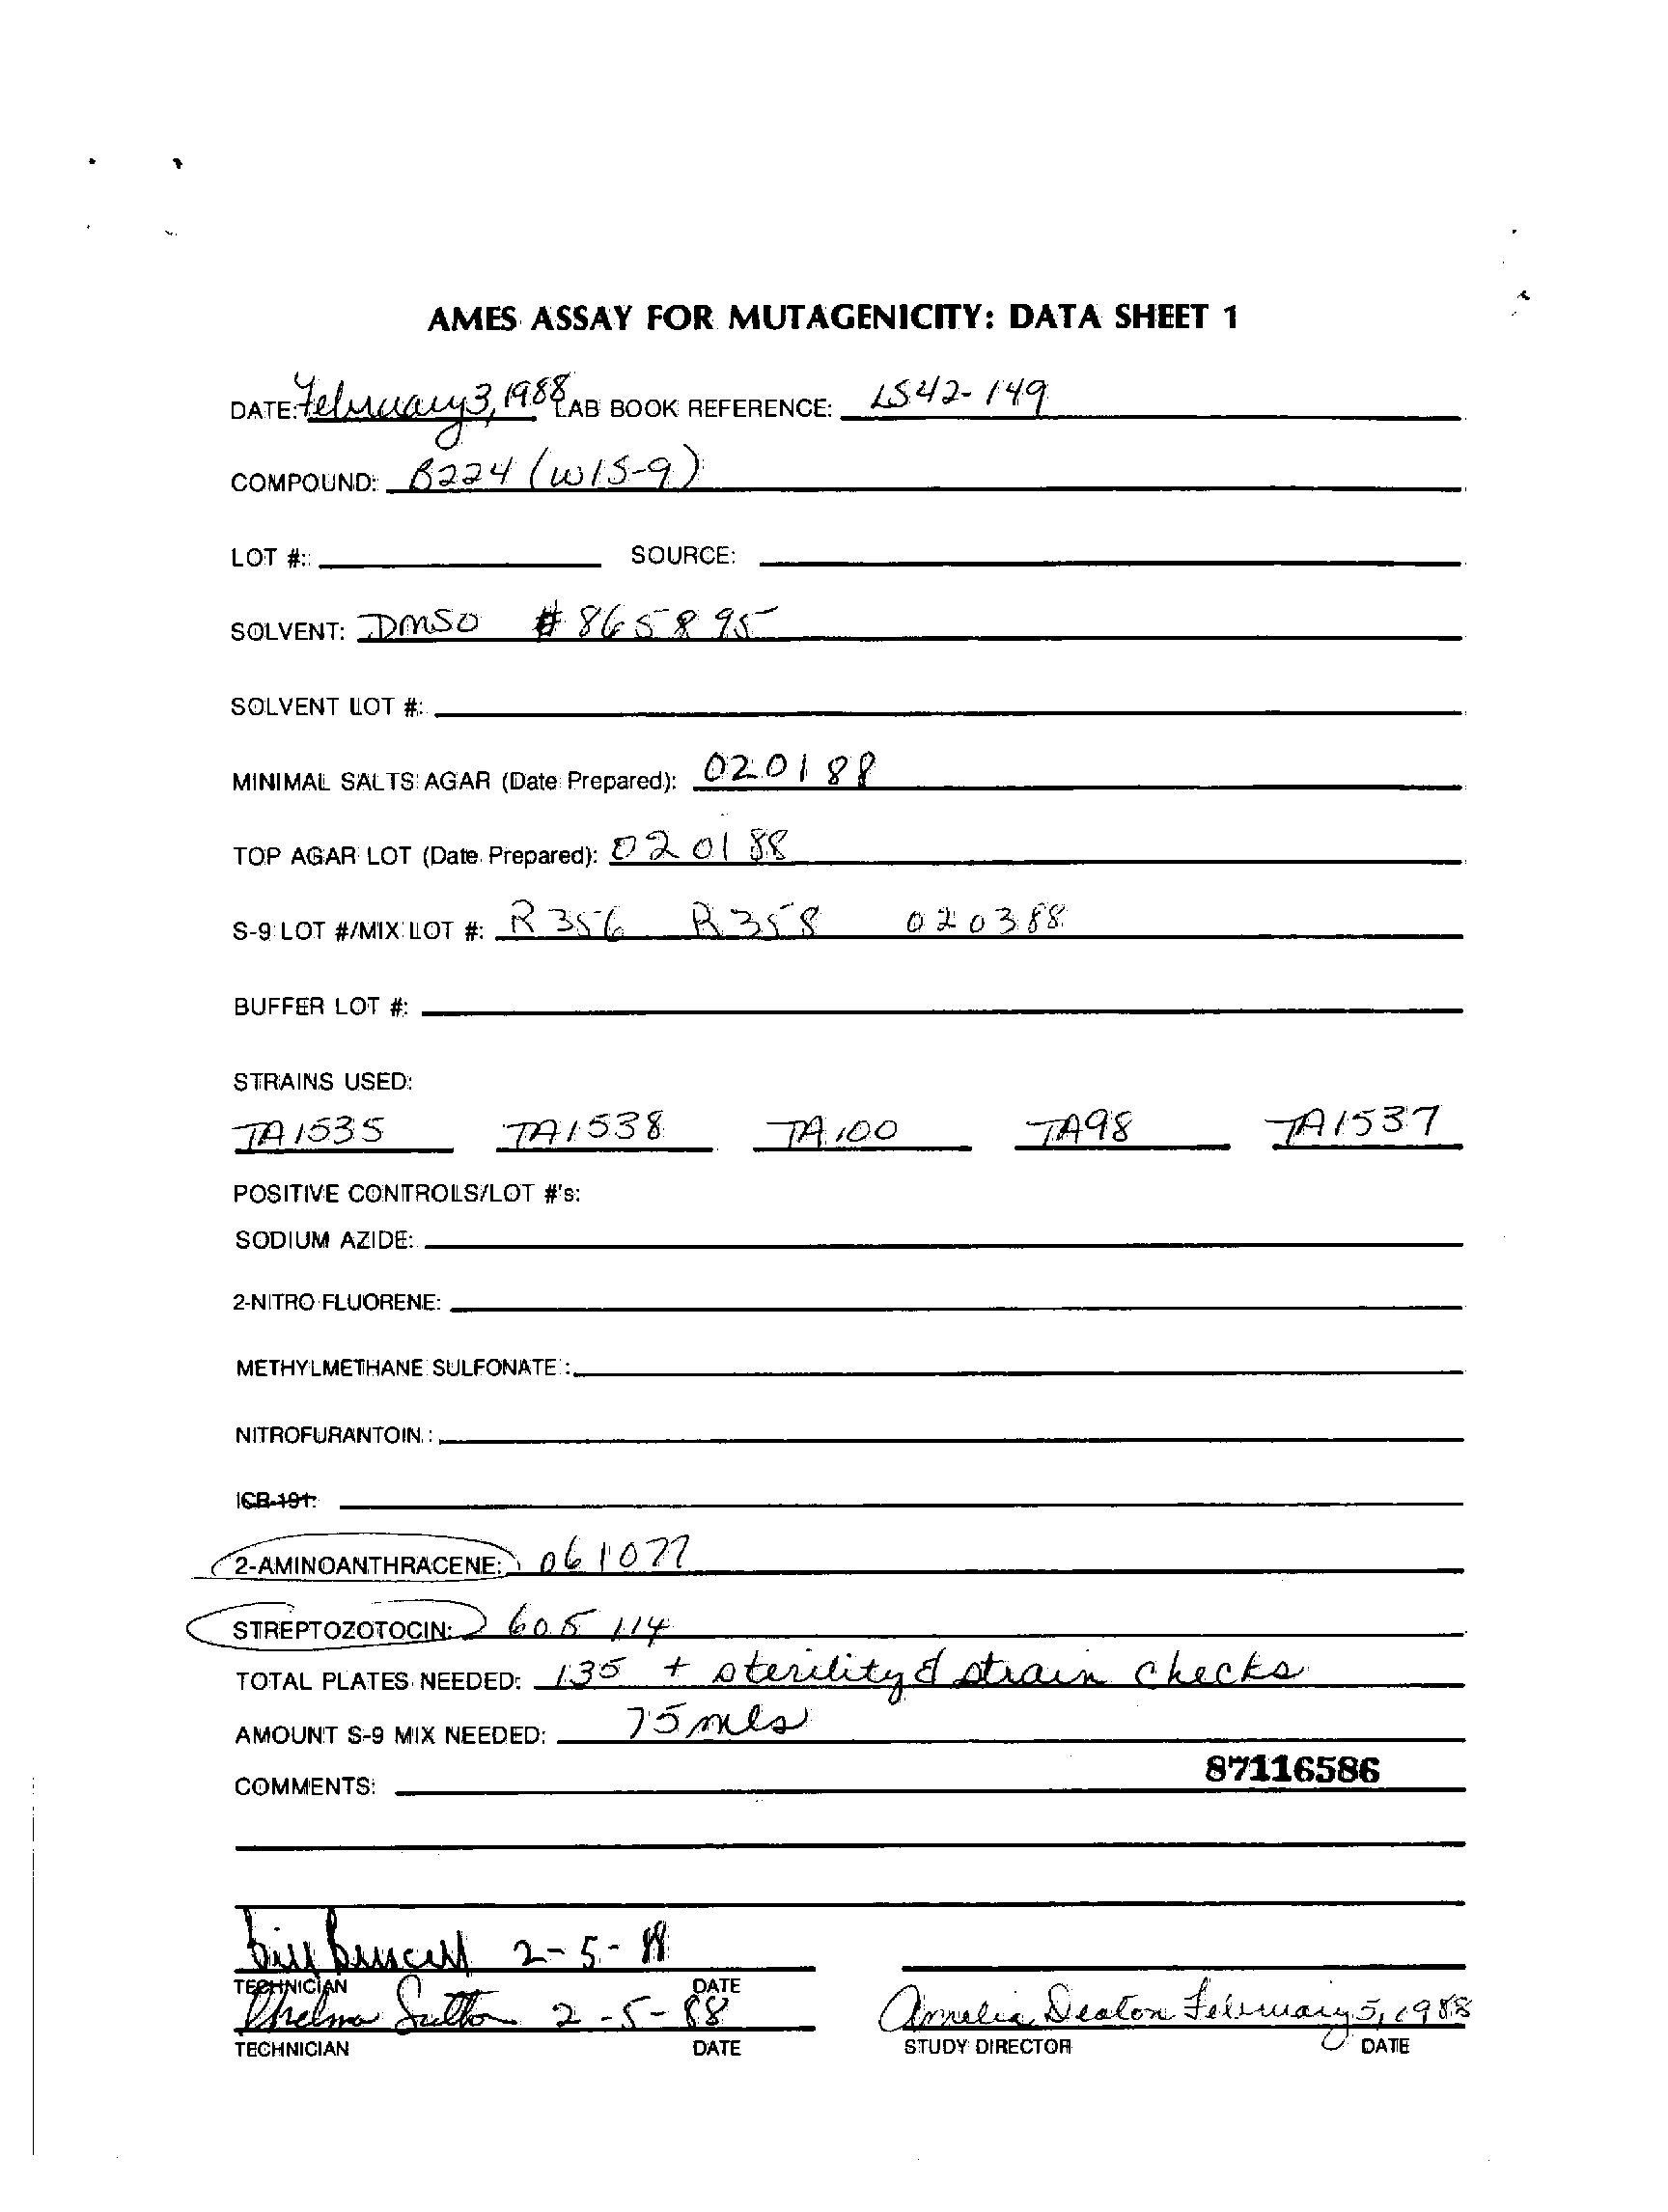 AMES ASSAY FOR MUTAGENICITY: DATA SHEET 1
DATE: February 3, 1988 LAB BOOK REFERENCE: LS42-149
COMPOUND: B224 (WIS-9)
LOT #: SOURCE:
SOLVENT: DMSO #865895
SOLVENT LOT #:
MINIMAL SALTS AGAR (Date Prepared): 020188
TOP AGAR LOT (Date Prepared): 020188
S-9 LOT #/MIX LOT #: R356 R358 020388
BUFFER LOT #:
STRAINS USED:
TA1535 TA1538 TA100 TA98 TA1537
POSITIVE CONTROLS/LOT #'s:
SODIUM AZIDE:
2-NITRO FLUORENE:
METHYLMETHANE SULFONATE :
NITROFURANTOIN :
ICR-191:
2-AMINOANTHRACENE: 061077
STREPTOZOTOCIN: 605114
TOTAL PLATES NEEDED: 135 + sterility & strain checks
AMOUNT S-9 MIX NEEDED: 75 mls
87116586
COMMENTS:
Bill 2-5-88
TECHNICIAN DATE
Thelma Sutton 2-5-88 Amelia Deaton February 5, 1988
TECHNICIAN DATE STUDY DIRECTOR DATE